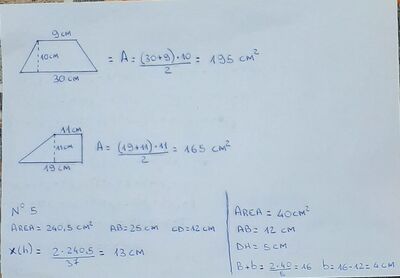 9 cm
10 cm
30 cm
= A = (30+9)·10 / 2 = 195 cm²
11 cm
11 cm
19 cm
A = (19+11)·11 / 2 = 165 cm²
N° 5
AREA = 240,5 cm² AB = 25 cm CD = 12 cm
X(h) = 2·240,5 / 37 = 13 cm
AREA = 40 cm²
AB = 12 cm
DH = 5 cm
B+b = 2·40 / 5 = 16 b = 16-12 = 4 cm